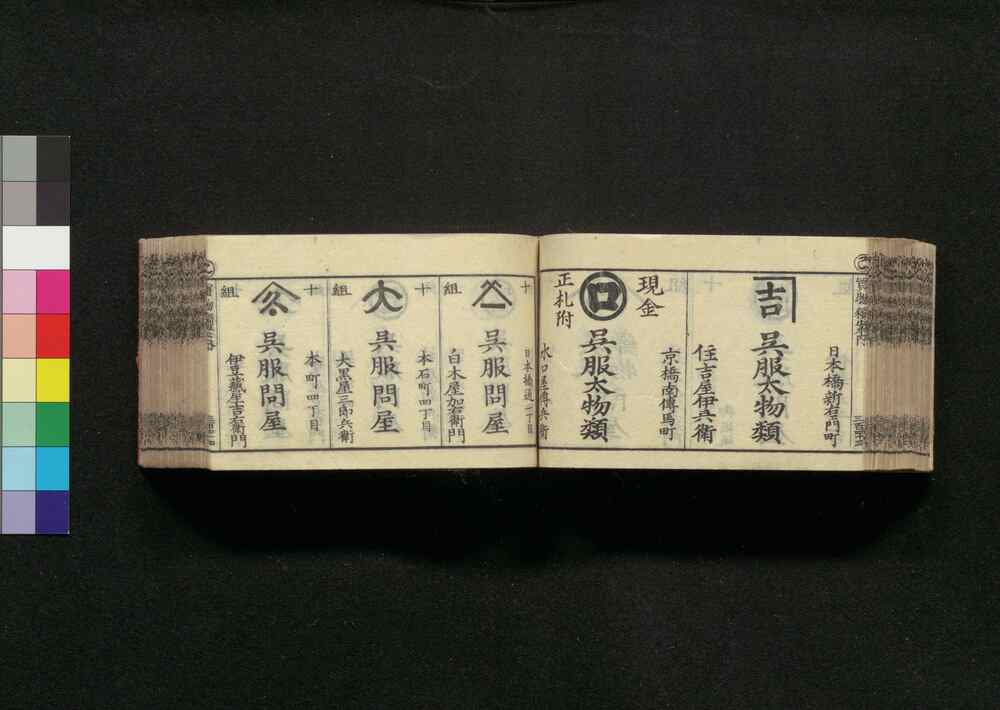 日本橋新右ヱ門町
吉
呉服太物類
住吉屋伊兵衛
京橋南傳馬町
現金
口
呉服太物類
正札附
水口屋傳兵衛
十
日本橋通一丁目
呉服問屋
組
白木屋加右衛門
十
本石町四丁目
大
呉服問屋
組
大黒屋三郎兵衛
十
本町四丁目
呉服問屋
組
伊豆藏屋吉右衛門